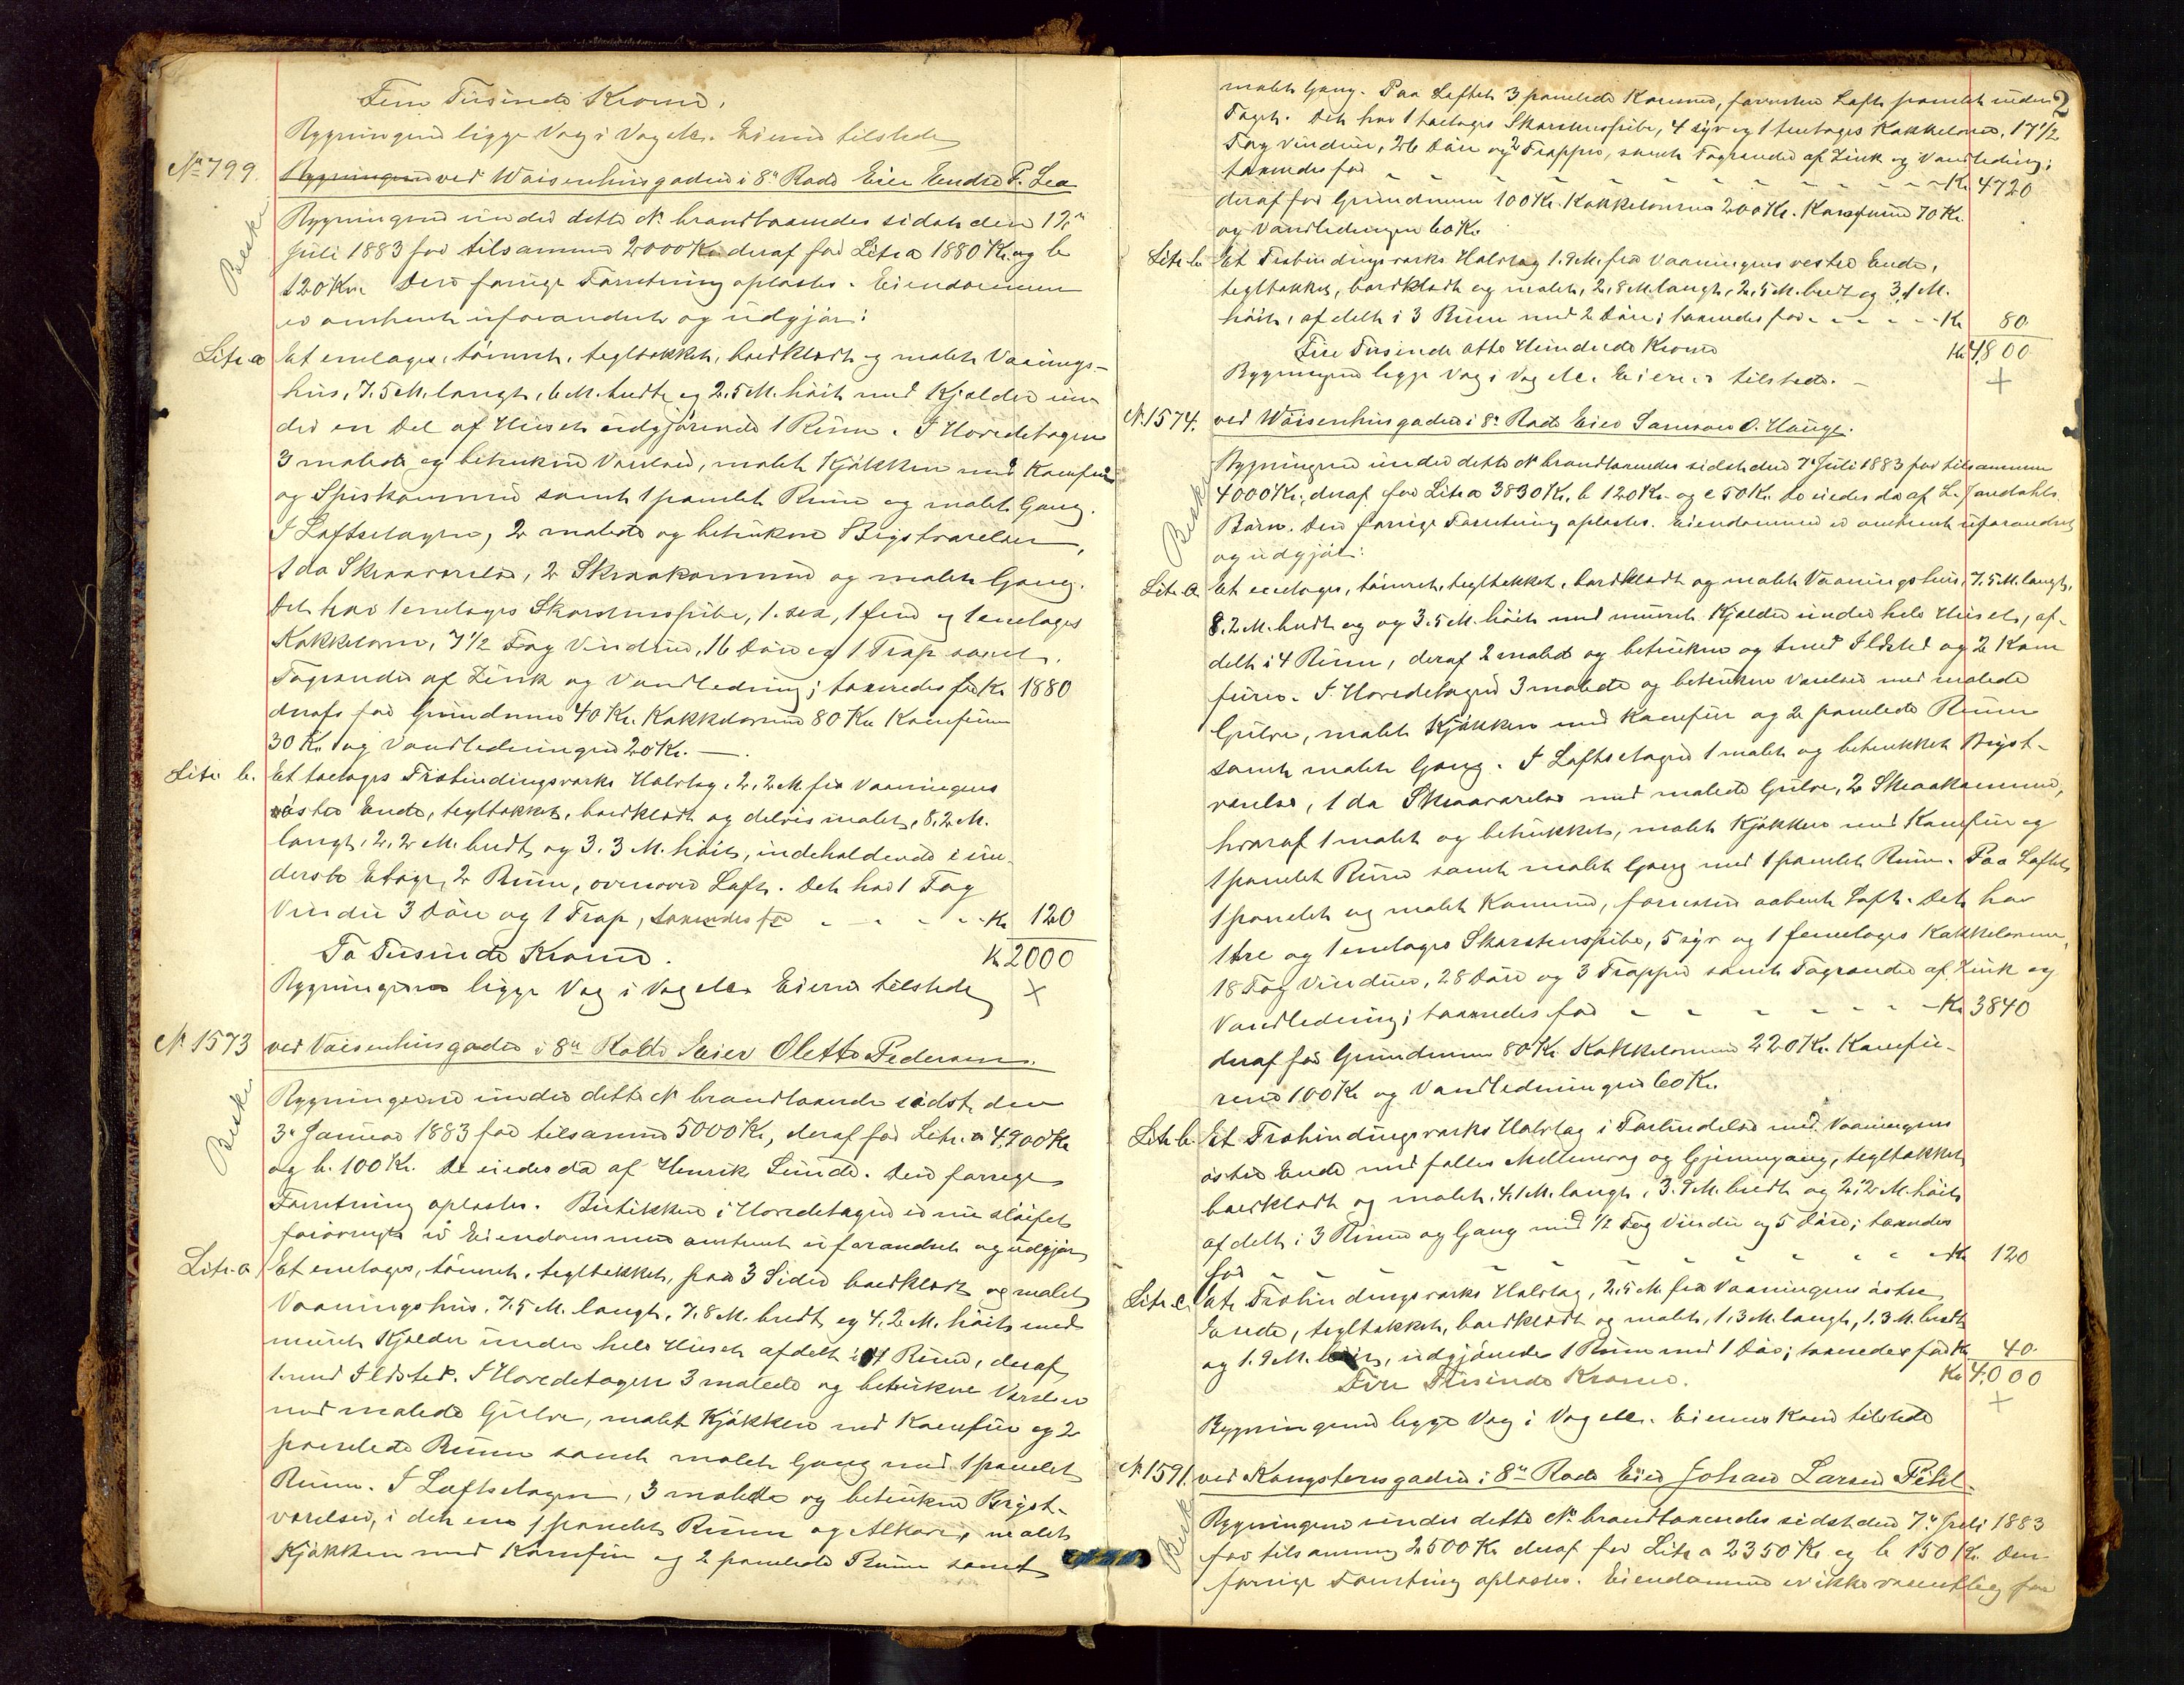 Fem Tusinde Kroner.
Bygningerne ligge Væg i Væg etc. Eieren tilstede
No 799. Bygningerne ved Waisenhusgaden i 8de Rode Eier Endre P. Lea
Besk.
Bygningerne under dette No brandtaxeredes sidst den 12te
Juli 1883 for tilsammen 2000 Kr. deraf for Litr a 1880 Kr. og b
120 Kr. Den forrige Forretning oplæstes. Eiendommen
er omtrent uforandret og udgjør:
Litr a Et enetages, tømret, tegltækket, bordklædt og malet Vaanings-
hus, 7.5 M. langt, 6 M. bredt og 2.5 M. høit med Kjelder un-
der en Del af Huset udgjørende 1 Rum. I Hovedetagen
3 malede og betrukne Værelser, malet Kjøkken med Komfur
og Spiskammer samt 1 panelet Rum og malet Gang.
I Loftsetagen, 2 malede og betrukne Brystværelser,
1 do Skraaværelse, 2 Skraakammer og malet Gang.
Det har 1 enetages Skorstenspibe, 1. sex, 1 fem og 1 enetages
Kakkelovn, 7 1/2 Fag Vinduer, 16 Døre og 1 Trap samt
Tagrender af Zink og Vandledning; taxeredes for Kr. 1880
deraf for Grundmuren 40 Kr. Kakkelovnene 80 Kr. Komfuren
30 Kr. og Vandledningen 20 Kr. —
Litr b. Et toetages Fribindingsværks Halvtag, 2,2 M. fra Vaaningens
østre Ende, tegltækket, bordklædt og delvis malet, 8,2 M.
langt, 2,2 M. bredt og 3.3 M. høit, indeholdende i un-
derste Etage, 2 Rum, ovenover Loft. Det har 1 Fag
Vindu 3 Døre og 1 Trap, taxeredes for - - - - Kr 120
To Tusinde Kroner. Kr 2000
Bygningerne ligge Væg i Væg etc. Eieren tilstede ×
No 1573 ved Vaisenhusgaden i 8de Rode Eier Olette Pedersen.
Besk.
Bygningerne under dette No brandtaxeredes sidst den
3de Januar 1883 for tilsammen 5000 Kr, deraf for Litr. a 4,900 Kr
og b. 100 Kr. De eiedes da af Henrik Sunde. Den forrige
Forretning oplæstes. Butikken i Hovedetagen er nu sløifet
forøvrigt er Eiendommen omtrent uforandret og udgjør
Litr. a Et enetages, tømret, tegltækket, paa 3 Sider bordklædt og malet
Vaaningshus, 7.5 M. langt, 7.8 M. bredt og 4,2 M. høit med
muret Kjelder under hele Huset afdelt i 4 Rum, deraf
1 med Ildsted. I Hovedetagen 3 malede og betrukne Værelser
med malede Gulve, malet Kjøkken med Komfur og 2
panelede Rum samt malet Gang med 1 panelet
Rum. I Loftsetagen, 3 malede og betrukne Bryst-
værelser, i det ene 1 panelet Rum og Alkove, malet
Kjøkken med Komfur og 2 panelede Rum samt
2
malet Gang. Paa Loftet 3 panelede Kammer, forresten Loft panelet under
Taget. Det har 1 toetages Skorstenspibe, 4 syv og 1 femetages Kakkelovne, 17 1/2
Fag Vinduer, 26 Døre og 2 Trapper, samt Tagrender af Zink og Vandledning;
taxeredes for - - - - - Kr. 4720
deraf for Grundmuren 100 Kr. Kakkelovnene 200 Kr. Komfurene 70 Kr.
og Vandledningen 60 Kr.
Litr b. Et Fribindingsværks Halvtag 1.9 M. fra Vaaningens vestre Ende,
tegltækket, bordklædt og malet, 2,8 M. langt, 2,5 M. bredt og 3,1 M.
høit, afdelt i 3 Rum med 2 Døre; taxeredes for - - - - Kr 80
Fire Tusinde otte Hundrede Kroner Kr 4,800
Bygningerne ligge Væg i Væg etc. Eieren tilstede. — +
No 1574. ved Waisenhusgaden i 8de Rode Eier Samson O. Hauge.
Besk.
Bygningerne under dette No brandtaxeredes sidst den 7de Juli 1883 for tilsammen
4000 Kr. deraf for Litr a 3830 Kr, b 120 Kr. og c 50 Kr. De eiedes da af L. Jondahls
Børn. Den forrige Forretning oplæstes. Eiendommen er omtrent uforandret
og udgjør:
Litr. a Et enetages, tømret, tegltækket, bordklædt og malet Vaaningshus, 7.5 M. langt,
8.2 M. bredt og og 3.5 M. høit med muret Kjelder under hele Huset, af-
delt i 4 Rum, deraf 2 malede og betrukne og 1 med Ildsted og 2 Kom
furer. I Hovedetagen 3 malede og betrukne Værelser med malede
Gulve, malet Kjøkken med Komfur og 2 panelede Rum
samt malet Gang. I Loftsetagen 1 malet og betrukket Bryst-
værelse, 1 do Skraaværelse med malede Gulve, 2 Skraakammer,
hvoraf 1 malet og betrukket, malet Kjøkken med Komfur og
1 panelet Rum samt malet Gang med 1 panelet Rum. Paa Loftet
1 panelet og malet Kammer, forresten aabent Loft. Det har
1 tre og 1 enetages Skorstenspibe, 5 syv og 1 femetages Kakkelovne,
18 Fag Vinduer, 28 Døre og 3 Trapper samt Tagrender af Zink og
Vandledning; taxeredes for - - - - - Kr 3840
deraf for Grundmuren 80 Kr. Kakkelovnene 220 Kr. Komfu-
rene 100 Kr og Vandledningen 60 Kr.
Litr b. Et Fribindingsværks Halvtag i Forbindelse med Vaaningens
østre Ende med fælles Mellemvæg og Gjennemgang, tegltækket
bordklædt og malet, 4,1 M. langt, 3.9 M. bredt og 2,2 M. høit
afdelt i 3 Rum og Gang med 1/2 Fag Vindu og 5 Døre; taxeredes
for - - - - - - Kr 120
Litr. c. Et Fribindingsværks Halvtag, 2.5 M. fra Vaaningens østre
Ende, tegltækket, bordklædt og malet, 1,3 M. langt, 1.3 M. bredt
og 1.9 M. høit, udgjørende 1 Rum med 1 Dør; taxeredes for Kr 40
Fire Tusinde Kroner. Kr 4,000
Bygningerne ligge Væg i Væg etc. Eierens Kone tilstede +
No 1591. ved Kongstensgaden i 8de Rode Eier Johan Larsen Pihl.
Besk.
Bygningerne under dette No brandtaxeredes sidst den 7de Juli 1883
for tilsammen 2500 Kr deraf for Litr a 2350 Kr og b 150 Kr. Den
forrige Forretning oplæstes. Eiendommen er ikke væsentlig for